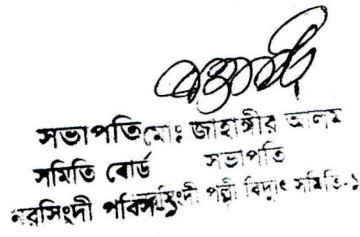 সভাপতি মোঃ জাহাঙ্গীর আলম
সমিতি বোর্ড সভাপতি
নরসিংদী পবিস-১ নরসিংদী পল্লী বিদ্যুৎ সমিতি-১